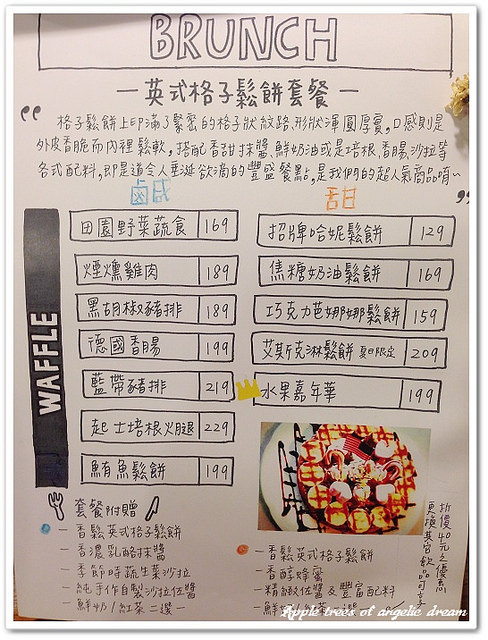 BRUNCH
一英式格子鬆餅套餐一
“ 格子鬆餅上印滿了緊密的格子狀紋路、形狀渾圓厚實,口感則是
外皮香脆而內裡鬆軟,搭配香甜抹醬、鮮奶油或是培根、香腸、沙拉等
各式配料,即是道令人垂涎欲滴的豐盛餐點,是我們的超人氣商品唷~ ”
鹵咸
田園野菜蔬食 169
煙燻雞肉 189
黑胡椒豬排 189
德國香腸 199
藍帶豬排 219
起士培根火腿 229
鮪魚鬆餅 199
甜
招牌哈妮鬆餅 129
焦糖奶油鬆餅 169
巧克力芭娜娜鬆餅 159
艾斯克淋鬆餅 夏日限定 209
水果嘉年華 199
WAFFLE
套餐附贈
一香鬆英式格子鬆餅
一香濃乳酪抹醬
一季節時蔬生菜沙拉
一純手作自製沙拉佐醬
一鮮奶/紅茶 二選一
一香鬆英式格子鬆餅
一香醇蜂蜜
一精緻佐醬&豐富配料
一鮮
更換其它飲品可享
折價40元之優惠
Apple trees of angelic dream